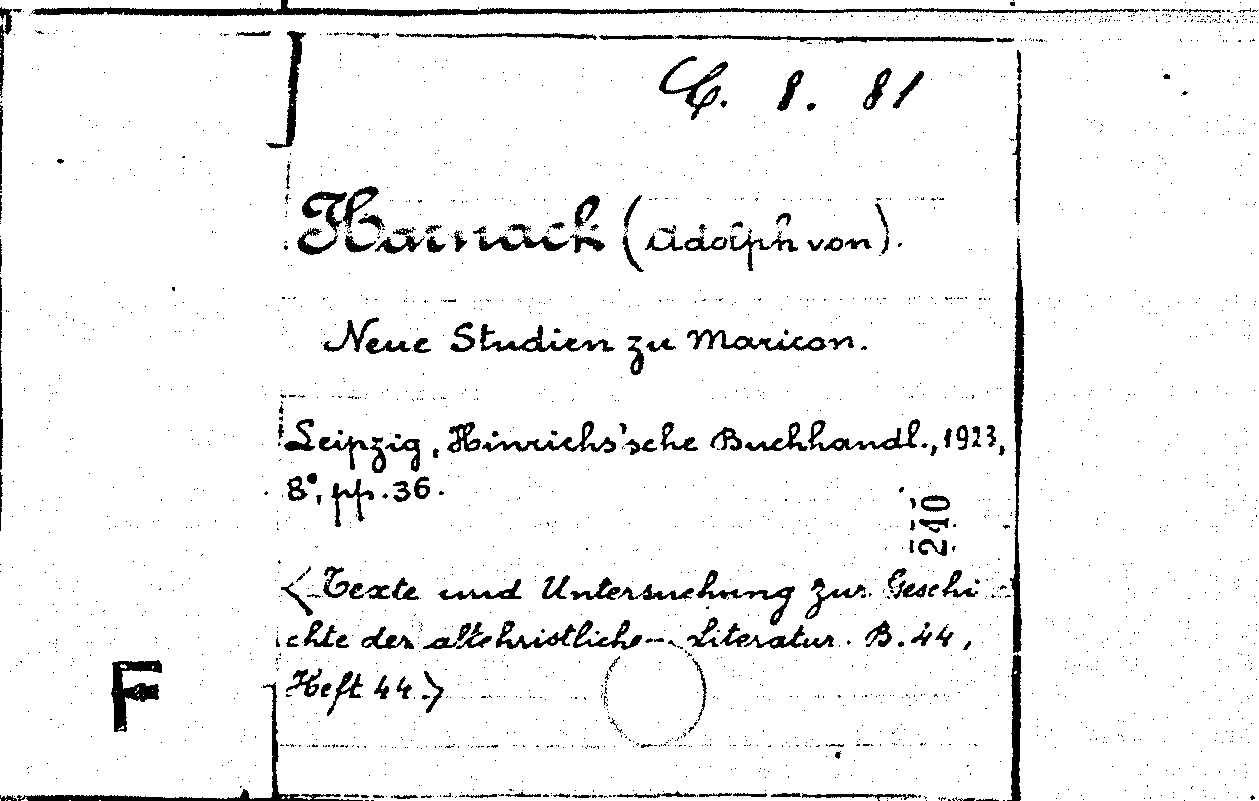 C. 8. 81
Harnack (Adolph von).
Neue Studien zu Maricon.
Leipzig, Hinrichs'sche Buchhandl., 1923,
8°, pp. 36.
210
<Texte und Untersuchung zur Geschi
chte der altchristliche Literatur. B. 44,
Heft 44.>
F